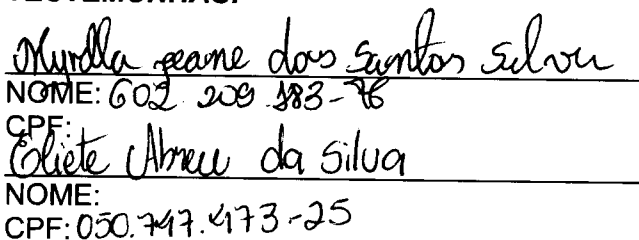 TESTEMUNHAS:
Myrdla jeane dos Santos Silva
NOME: 602 209 383-76
CPF:
Eliete Abreu da Silva
NOME:
CPF: 050.747.473-25